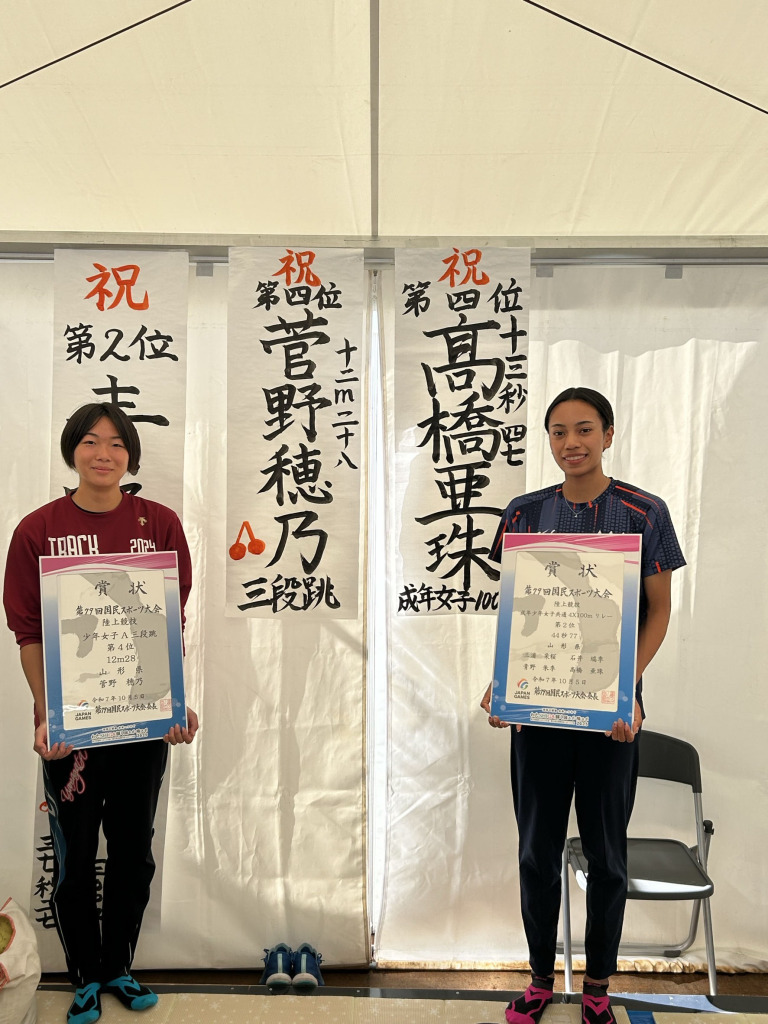 祝
第2位
祝
第四位
菅野穂乃
十二m二十八
三段跳
祝
第四位
高橋亜珠
十三秒四七
成年女子100
TRACK 2024
賞状
第79回国民スポーツ大会
陸上競技
少年女子A三段跳
第4位
12m28
山形県
菅野 穂乃
令和7年10月5日
JAPAN
GAMES
第79回国民スポーツ大会会長
賞状
第79回国民スポーツ大会
陸上競技
成年少年女子共通4X100mリレー
第2位
44秒77
山形県
三浦 石井
菅野 高橋 亜珠
令和7年10月5日
JAPAN
GAMES
第79回国民スポーツ大会会長